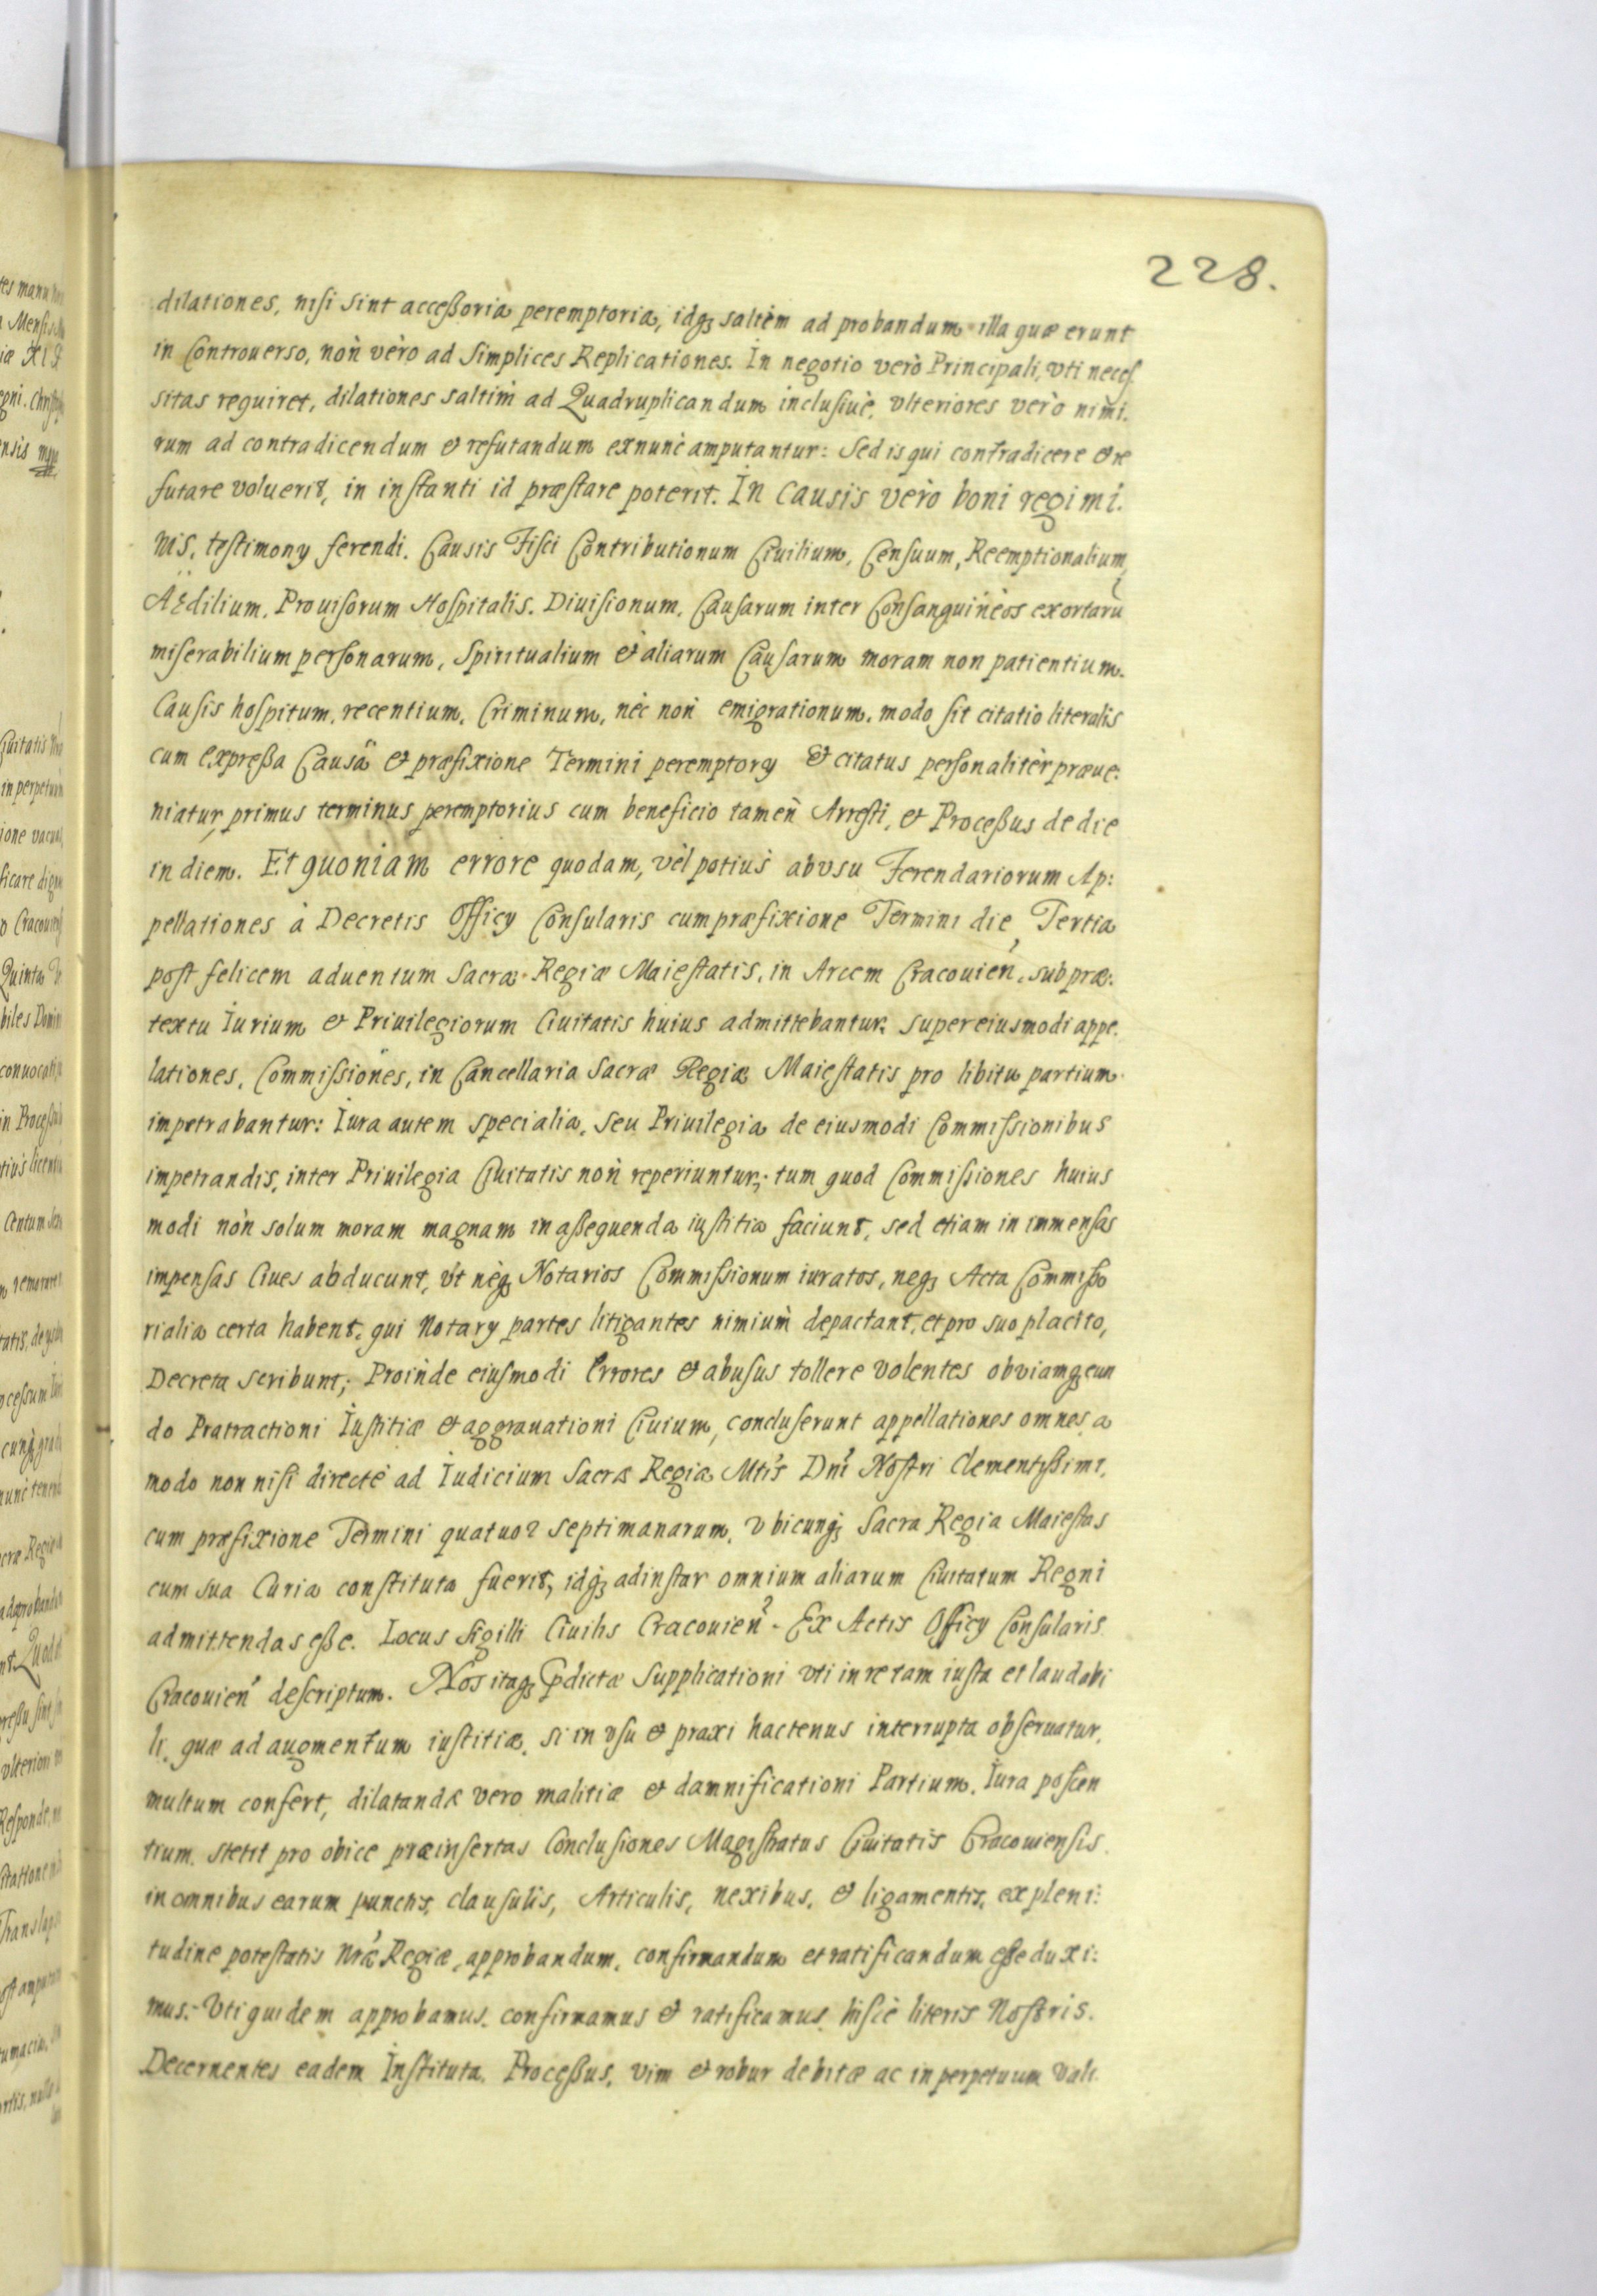 228.
dilationes, nisi sint acceßoria peremptoria, idq₃ saltèm ad probandum illa quæ erunt
in Controuerso, non vèro ad Simplices Replicationes. In negotio verò Principali, vti neces
sitas requiret, dilationes saltim ad Quadruplicandum inclusiuè, vlteriores verò nimi:
rum ad contradicendum et refutandum exnunc amputantur: Sed is qui contradicere et re
futare voluerit, in instanti id præstare poterit. In causis vèro boni regimi:
nis, testimony ferendi. Causis Fisci Contributionum Ciuilium, Censuum, Reemptionalium,
Ædilium, Prouisorum Hospitalis. Diuisionum, Causarum inter Consanguineos exortarū
miserabilium personarum, Spiritualium et aliarum Causarum moram non patientium.
Causis hospitum, recentium, Criminum, nèc non emigrationum, modo sit citatio literalis
cum expreßa Causa et præfixione Termini peremptory et citatus personalitèr præue:
niatur, primus terminus peremptorius cum beneficio tamen Arresti, et Proceßus de die
in diem. Et quoniam errore quodam, vèl potius abvsu Ferendariorum Ap:
pellationes à Decretis Officy Consularis cum præfixione Termini die Tertia
post felicem aduentum Sacræ Regiæ Maiestatis, in Arcem Cracouien, sub præ:
textu Iurium et Priuilegiorum Ciuitatis huius admittebantur, super eiusmodi appe.
lationes, Commissiones, in Cancellaria Sacræ Regiæ Maiestatis pro libitu partium
impetrabantur: Iura autem specialia, seu Priuilegia de eiusmodi Commissionibus
impetrandis, inter Priuilegia Ciuitatis non reperiuntur; tum quod Commissiones huius
modi non solum moram magnam in aßequenda iustitia faciunt, sed etiam in immensas
impensas Ciues abducunt, vt neq₃ Notarios Commissionum iuratos, neq₃ Acta Commisso
rialia certa habent, qui Notary partes litigantes nimium depactant, et pro suo placito,
Decreta scribunt; Proinde eiusmodi Errores et abusus tollere volentes obviamq₃ eun
do Pratractioni Iustitiæ et aggrauationi Ciuium, concluserunt appellationes omnes a
modo non nisi directè ad Iudicium Sacræ Regiæ Mtis Dni Nostri Clementissimi,
cum præfixione Termini quatuor septimanarum, vbicunq₃ Sacra Regia Maiestas
cum sua Curia constituta fuerit, idq₃ adinstar omnium aliarum Ciuitatum Regni
admittendas eße. Locus Sigilli Ciuilis Cracouien. Ex Actis Officy Consularis
Cracouien descriptum. Nos itaq₃ pdictæ Supplicationi vti in re tam iusta et laudabi
li, quæ ad augmentum iustitiæ, si in vsu et praxi hactenus interrupta obseruatur,
multum confert, dilatandæ vero malitiæ et damnificationi Partium, Iura poscen
tium, stetit pro obice præinsertas Conclusiones Magistratus Ciuitatis Cracouiensis
in omnibus earum punctis, clausulis, Articulis, nexibus, et ligamentis, ex pleni:
tudine potestatis Nræ Regiæ, approbandum, confirmandum et ratificandum eße duxi:
mus. Vti quidem approbamus, confirmamus et ratificamus hisce literis Nostris.
Decernentes eadem Instituta, Proceßus, vim et robur debitæ ac in perpetuum vali